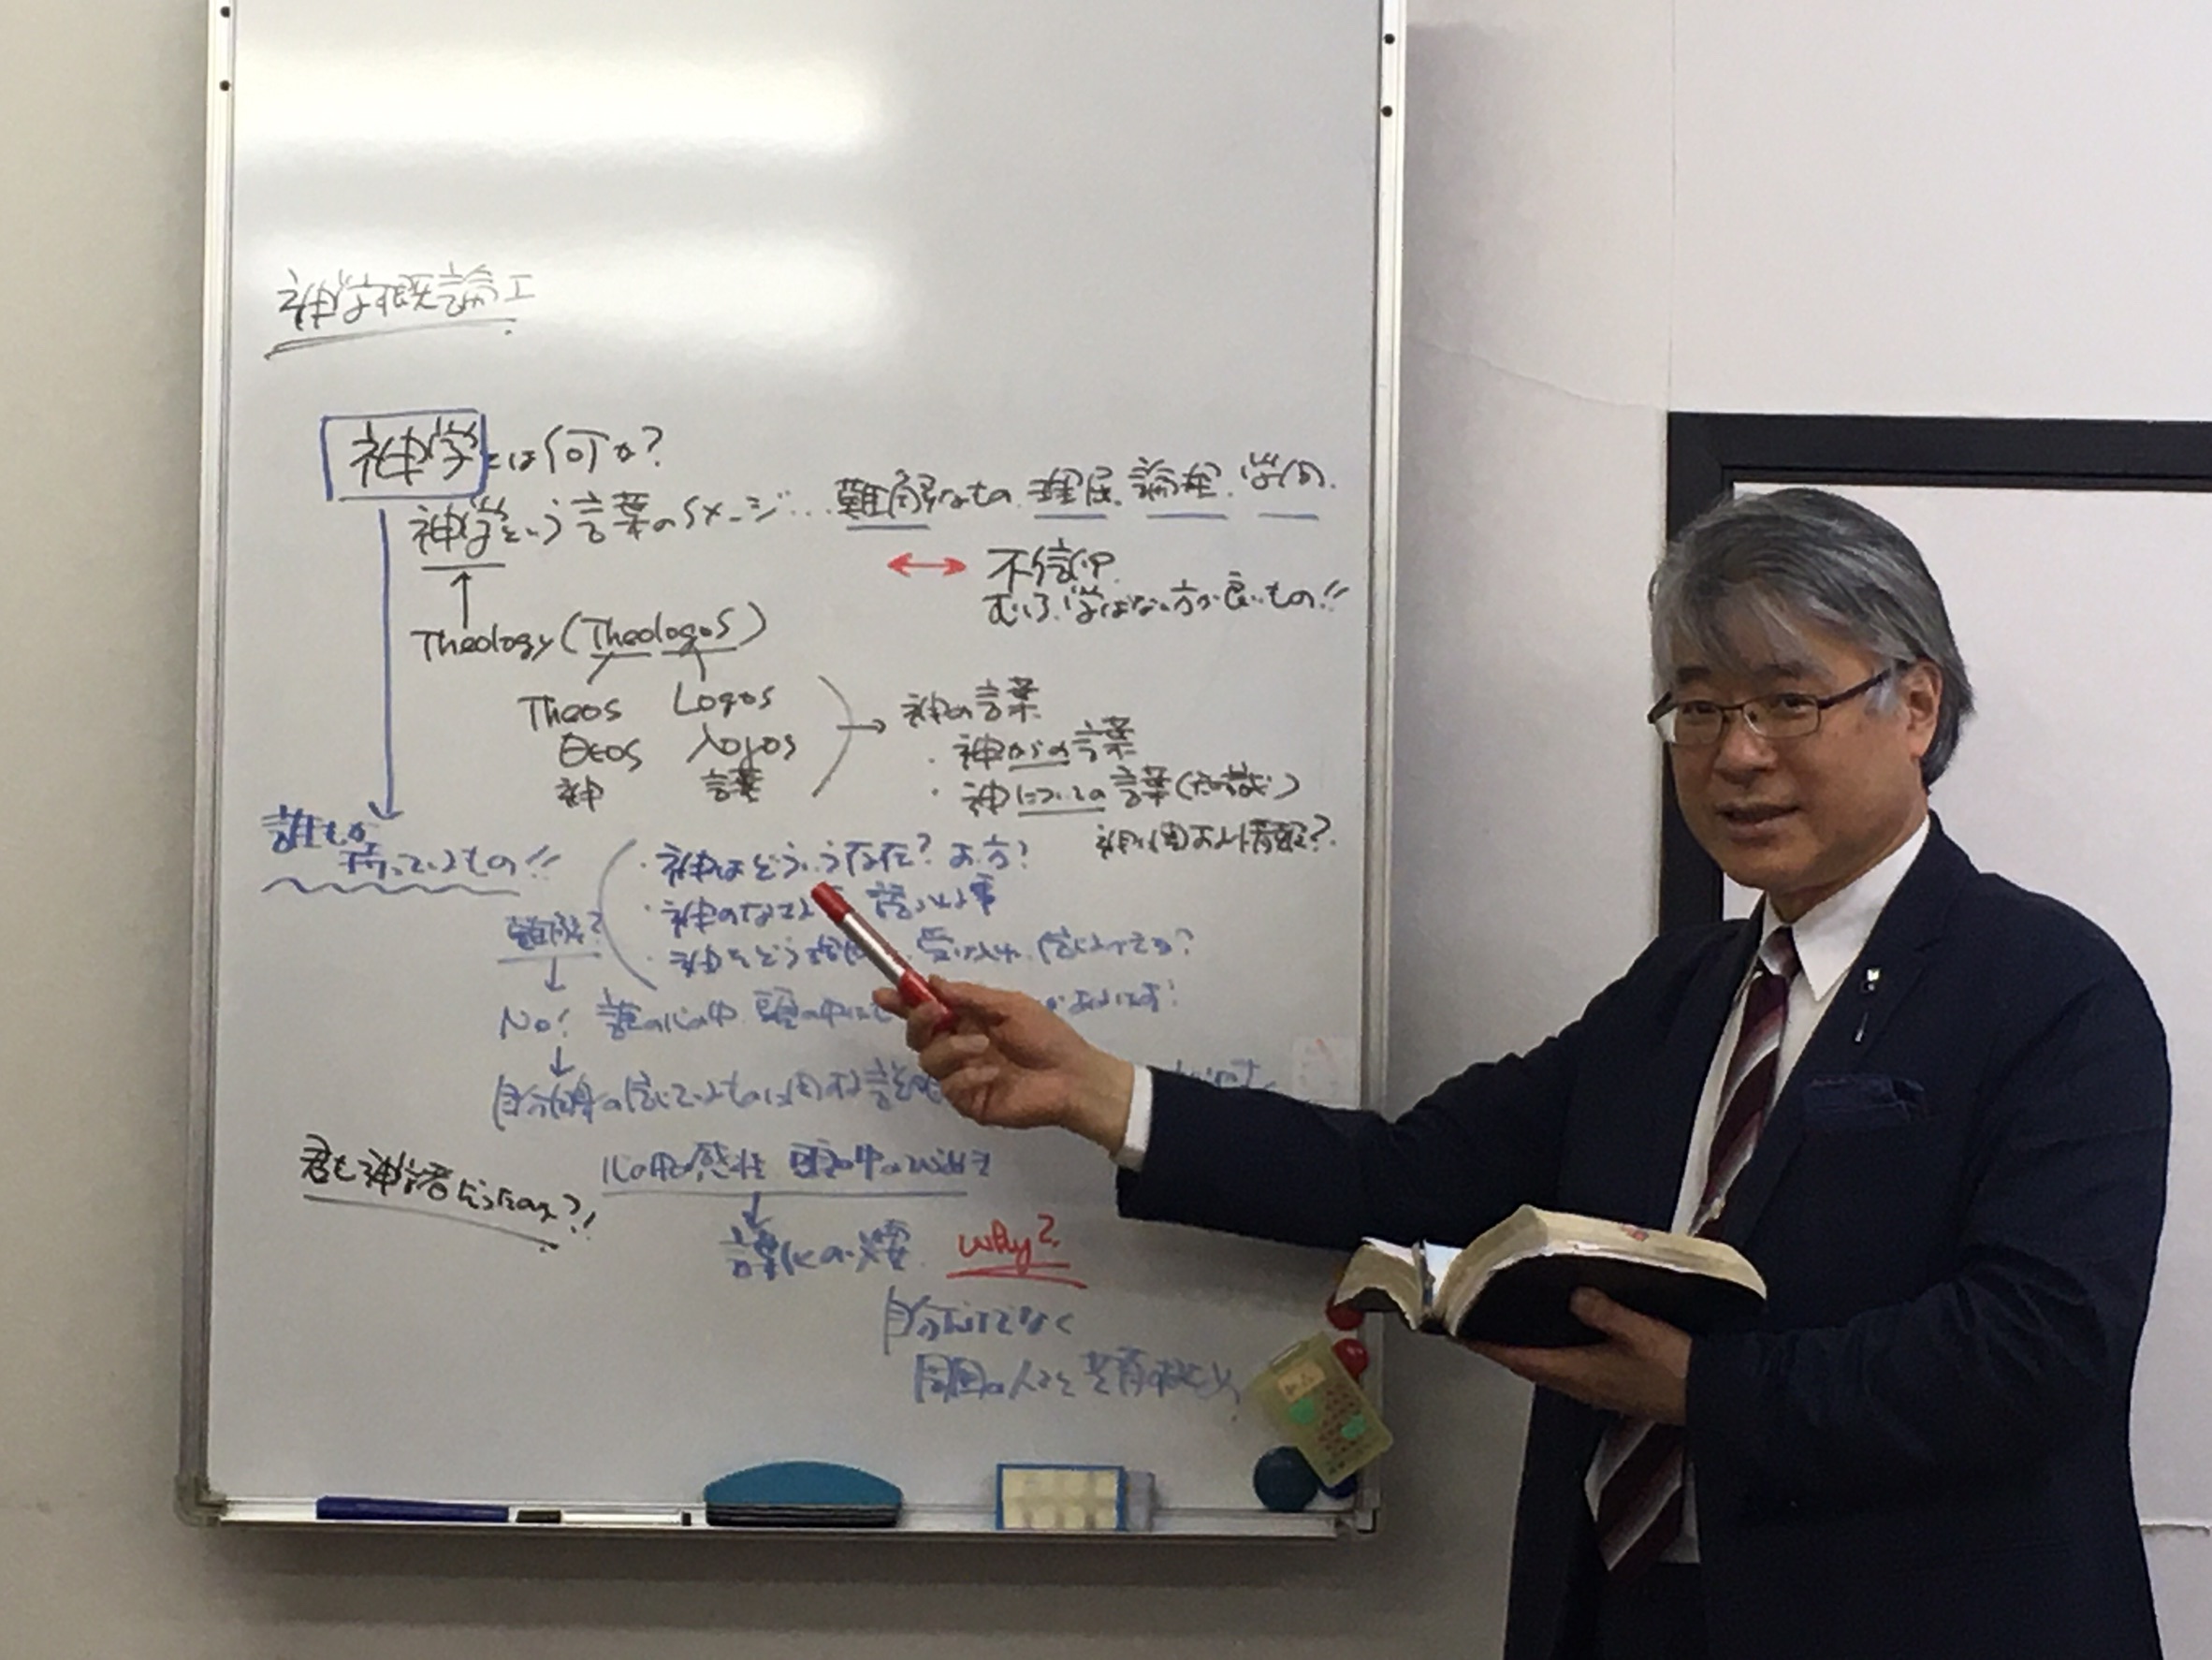 神学概論 I
神学とは何か?
神学という言葉のイメージ... 難解なもの. 理屈. 論理. 学問.
↔ 不信仰
むしろ、学ばない方が良いもの!!
Theology (Theologos)
Theos Logos
θεos λογos
神 言葉
→ 神の言葉
・神からの言葉
・神についての言葉(知識)
神に関する情報?
誰もが
持っているもの!!
・神はどういう存在? お方?
・神のなさ
・神をどう 受け入れ 信じ
難解?
↓
No! 誰の心の中 頭の中に
↓
自分自身の信じているものに関する
君も神学者だったのか?!
心の中の感性 頭の中の
↓
言葉化の必要. Why?
自分だけでなく
周囲の人々と共有のため